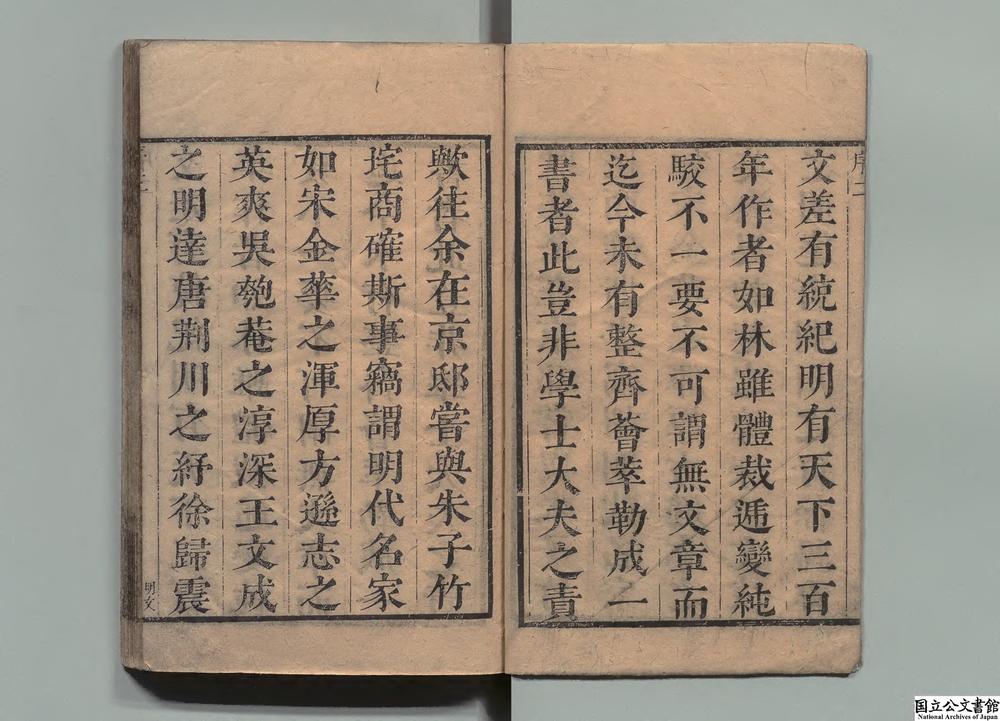 文差有統紀明有天下三百
年作者如林雖體裁遞變純
駁不一要不可謂無文章而
迄今未有整齊薈萃勒成一
書者此豈非學士大夫之責
歟往余在京邸嘗與朱子竹
垞商確斯事竊謂明代名家
如宋金華之渾厚方遜志之
英爽吳匏菴之淳深王文成
之明達唐荆川之紓徐歸震
序二
明文
国立公文書館
National Archives of Japan